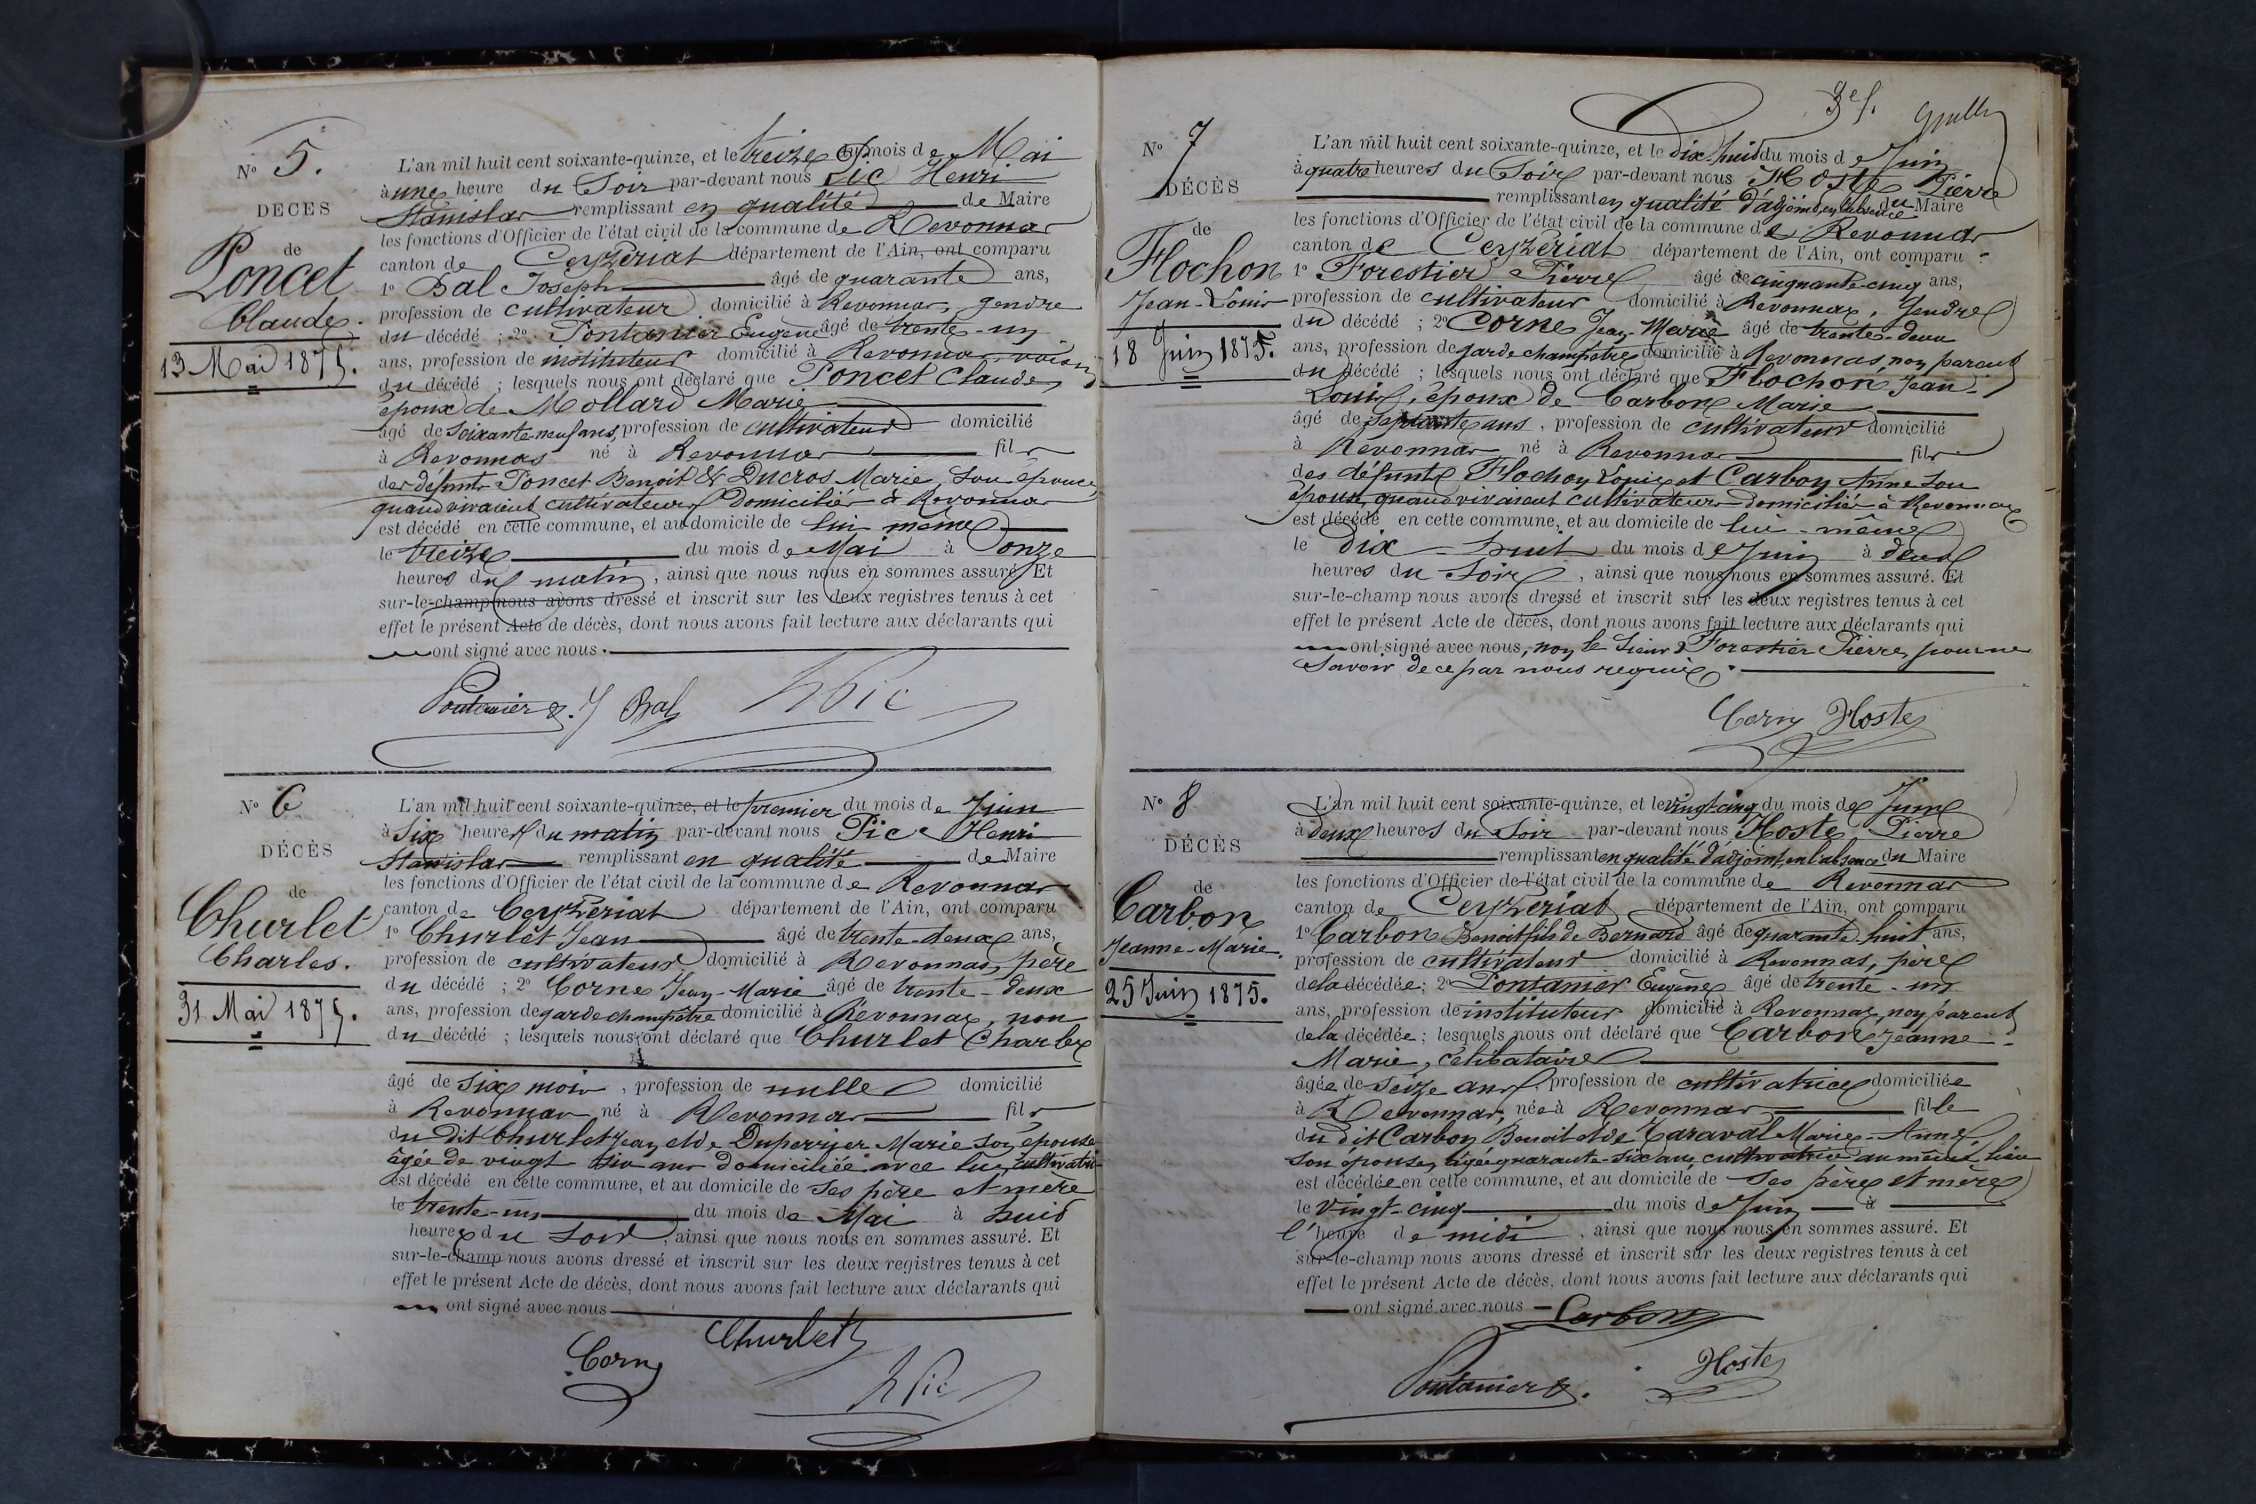 N° 5.
DÉCÈS
de
Poncet
Claude.
13 Mai 1875.
L'an mil huit cent soixante-quinze, et le treize du mois de Mai
à une heure du Soir par-devant nous Pic Henri
Stanislas remplissant en qualité de Maire
les fonctions d'Officier de l'état civil de la commune de Revonnas
canton de Ceyzériat département de l'Ain, ont comparu
1° Bal Joseph âgé de quarante ans,
profession de cultivateur domicilié à Revonnas, gendre
du décédé ; 2° Pontanier Eugène âgé de trente-un
ans, profession de instituteur domicilié à Revonnas, voisin
du décédé ; lesquels nous ont déclaré que Poncet Claude,
époux de Mollard Marie
âgé de soixante-neuf ans, profession de cultivateur domicilié
à Revonnas né à Revonnas fils
des défunts Poncet Benoit & Ducros Marie, son épouse,
quand vivaient cultivateurs domiciliés à Revonnas
est décédé en cette commune, et au domicile de lui-même
le treize du mois de Mai à onze
heures du matin, ainsi que nous nous en sommes assuré. Et
sur-le-champ nous avons dressé et inscrit sur les deux registres tenus à cet
effet le présent Acte de décès, dont nous avons fait lecture aux déclarants qui
ont signé avec nous.
Pontanier E. J Bal h Pic
N° 6
DÉCÈS
de
Churlet
Charles.
31 Mai 1875.
L'an mil huit cent soixante-quinze, et le premier du mois de Juin
à Six heures du matin par-devant nous Pic Henri
Stanislas remplissant en qualité de Maire
les fonctions d'Officier de l'état civil de la commune de Revonnas
canton de Ceyzériat département de l'Ain, ont comparu
1° Churlet Jean âgé de trente-deux ans,
profession de cultivateur domicilié à Revonnas, père
du décédé ; 2° Corne Jean-Marie âgé de trente-deux
ans, profession de garde champêtre domicilié à Revonnas, non
du décédé ; lesquels nous ont déclaré que Churlet Charles
âgé de six mois, profession de nulle domicilié
à Revonnas né à Revonnas fils
du dit Churlet Jean et de Duperrier Marie son épouse
âgée de vingt six ans domiciliée avec lui, cultivatrice
est décédé en cette commune, et au domicile de ses père et mère
le trente-un du mois de Mai à huit
heures du soir, ainsi que nous nous en sommes assuré. Et
sur-le-champ nous avons dressé et inscrit sur les deux registres tenus à cet
effet le présent Acte de décès, dont nous avons fait lecture aux déclarants qui
ont signé avec nous
Churlet
Corne
h Pic
3e f.
N° 7
DÉCÈS
de
Flochon
Jean-Louis
18 Juin 1875.
L'an mil huit cent soixante-quinze, et le dix-huit du mois de Juin
à quatre heures du Soir par-devant nous Hoste Pierre
remplissant en qualité d'adjoint, en l'absence du Maire
les fonctions d'Officier de l'état civil de la commune de Revonnas
canton de Ceyzériat département de l'Ain, ont comparu :
1° Forestier Pierre âgé de cinquante-cinq ans,
profession de cultivateur domicilié à Revonnas, Gendre
du décédé ; 2° Corne Jean-Marie âgé de trente-deux
ans, profession de garde champêtre domicilié à Revonnas, non parent
du décédé ; lesquels nous ont déclaré que Flochon, Jean-
Louis, époux de Carbon Marie
âgé de septante ans, profession de cultivateur domicilié
à Revonnas né à Revonnas fils
des défunts Flochon Louis et Carbon Anne son
épouse, quand vivaient cultivateurs domiciliés à Revonnas
est décédé en cette commune, et au domicile de lui-même
le dix-huit du mois de Juin à deux
heures du Soir, ainsi que nous nous en sommes assuré. Et
sur-le-champ nous avons dressé et inscrit sur les deux registres tenus à cet
effet le présent Acte de décès, dont nous avons fait lecture aux déclarants qui
ont signé avec nous, non le Sieur Forestier Pierre, pour ne
savoir de ce par nous requis.
Corne Hoste
N° 8
DÉCÈS
de
Carbon
Jeanne-Marie.
25 Juin 1875.
L'an mil huit cent soixante-quinze, et le vingt-cinq du mois de Juin
à deux heures du Soir par-devant nous Hoste Pierre
remplissant en qualité d'adjoint, en l'absence du Maire
les fonctions d'Officier de l'état civil de la commune de Revonnas
canton de Ceyzériat département de l'Ain, ont comparu
1° Carbon Benoit fils de Bernard âgé de quarante-huit ans,
profession de cultivateur domicilié à Revonnas, père
de la décédée ; 2° Pontanier Eugène âgé de trente-un
ans, profession de instituteur domicilié à Revonnas, non parent
de la décédée ; lesquels nous ont déclaré que Carbon Jeanne-
Marie, célibataire
âgée de seize ans, profession de cultivatrice domiciliée
à Revonnas, née à Revonnas fille
du dit Carbon Benoit et de Taraval Marie-Anne,
son épouse, âgée quarante-six ans, cultivatrice au même lieu
est décédée en cette commune, et au domicile de ses père et mère
le vingt-cinq du mois de Juin à
l'heure de midi, ainsi que nous nous en sommes assuré. Et
sur-le-champ nous avons dressé et inscrit sur les deux registres tenus à cet
effet le présent Acte de décès, dont nous avons fait lecture aux déclarants qui
ont signé avec nous Carbon
Pontanier E. Hoste